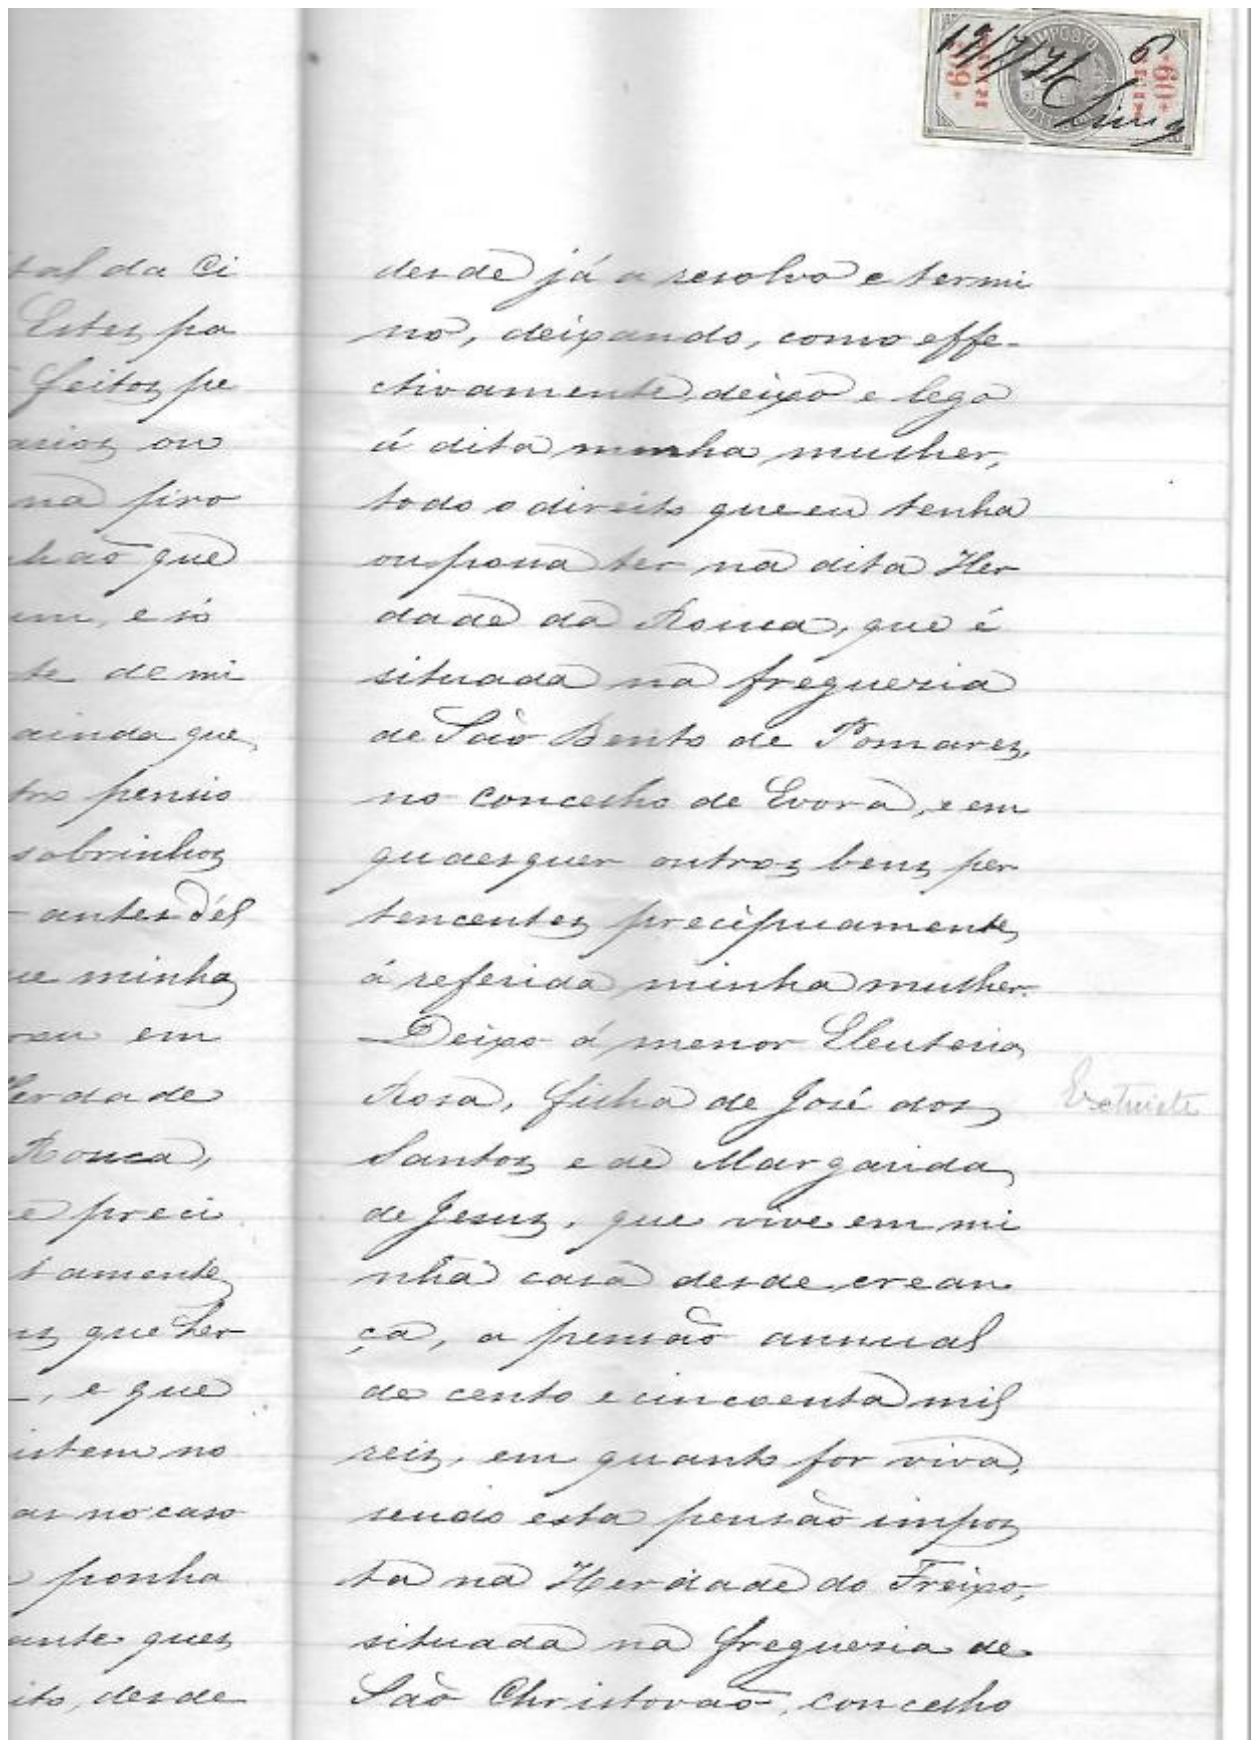 IMPOSTO
60
60
tal da Ci
Estes pa
feitos pe
arios ou
na pro
hão que
um, e só
te de mi
ainda que
tro pensio
sobrinhos
antes d'el
ue minha
reu em
Herdade
Rouca,
e preci
tamente
ns que her
, e que
istem no
as no caso
ponha
ante ques
ito, desde
desde já a resolvo e termi
no, deixando, como effe-
ctivamente deixo e lego
á dita minha mulher,
todo o direito que eu tenha
ou possa ter na dita Her
dade da Rouca, que é
situada na freguesia
de São Bento de Pomares,
no concelho de Evora, e em
quaesquer outros bens per
tencentes precipuamente
á referida minha mulher.
Deixo á menor Eleuteria
Rosa, filha de José dos
Santos e de Margarida
de Jesus, que vive em mi
nha casa desde crean
ça, a pensão annual
de cento e cincoenta mil
reis, em quanto for viva,
sendo esta pensão impos
ta na Herdade do Freixo,
situada na freguesia de
São Christovão, concelho